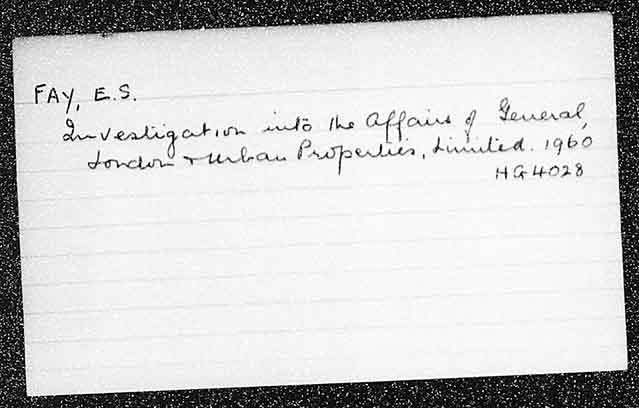 FAY, E.S.
Investigation into the Affairs of General,
London & Urban Properties, Limited. 1960
HG4028